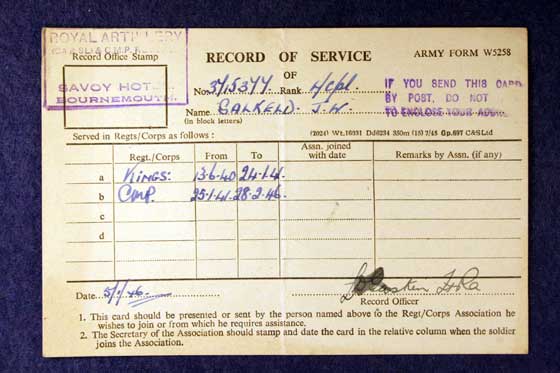 ROYAL ARTILLERY
Record Office Stamp
SAVOY HOT
BOURNEMOUTH.
RECORD OF SERVICE
OF
ARMY FORM W5258
No. 3715377 Rank
Name SALKELD. J.W.
(in block letters)
IF YOU SEND THIS CARD
BY POST, DO NOT
TO ENCLOSE YOUR
Served in Regts/Corps as follows :
Regt./Corps From To Assn. joined with date Remarks by Assn. (if any)
a KINGS. 13-6-40 24-1-41.
b CMP. 25-1-41. 28-2-46.
c
d
Date
Record Officer
1. This card should be presented or sent by the person named above to the Regt/Corps Association he
wishes to join or from which he requires assistance.
2. The Secretary of the Association should stamp and date the card in the relative column when the soldier
joins the Association.